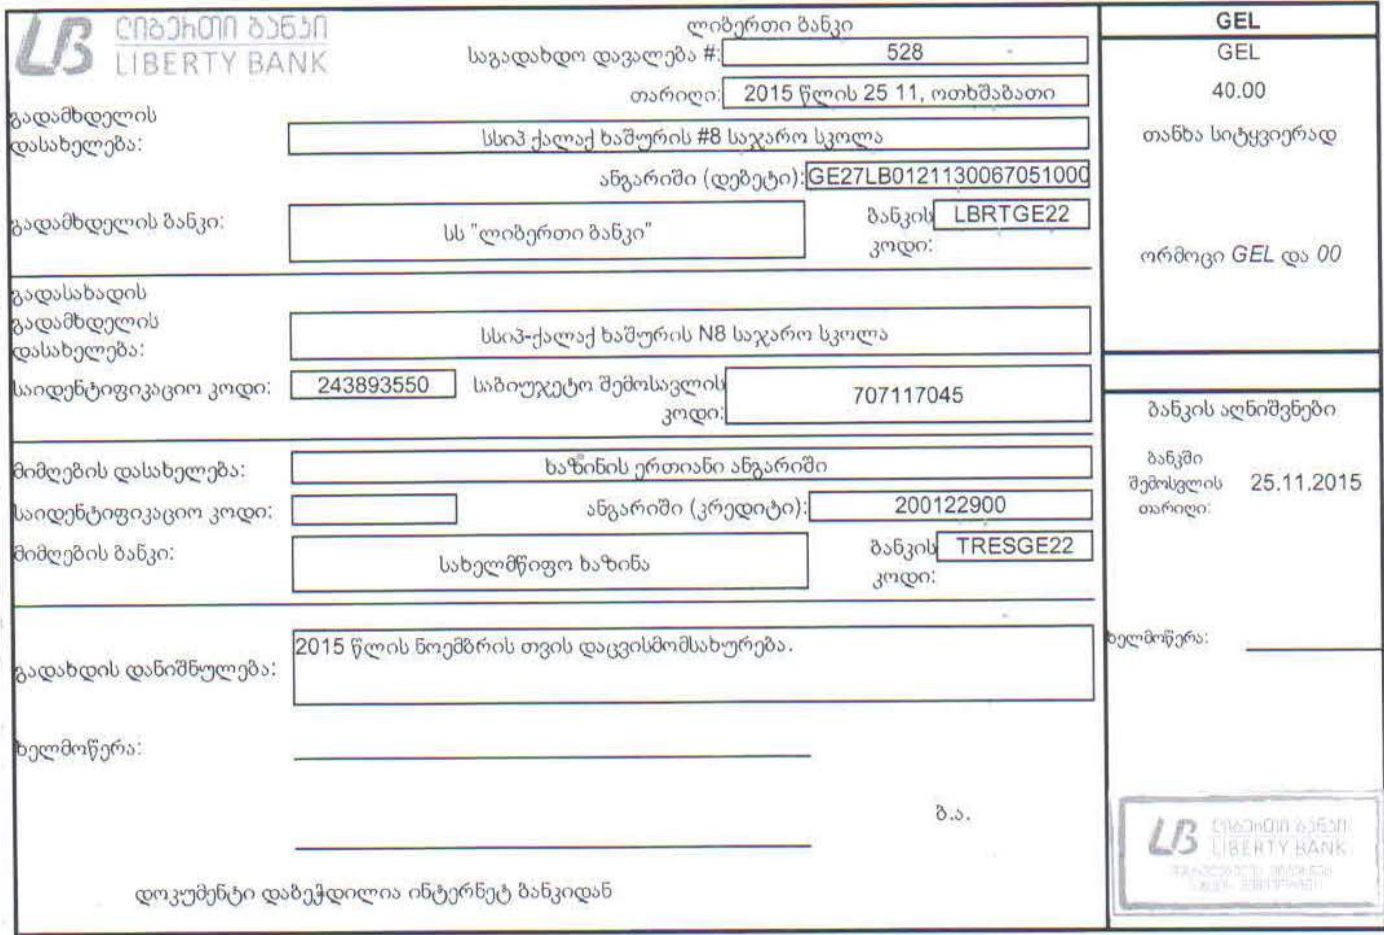 ლიბერთი ბანკი
LIBERTY BANK
ლიბერთი ბანკი
საგადახდო დავალება #: 528
თარიღი: 2015 წლის 25 11, ოთხშაბათი
გადამხდელის
დასახელება: სსიპ ქალაქ ხაშურის #8 საჯარო სკოლა
ანგარიში (დებეტი): GE27LB0121130067051000
გადამხდელის ბანკი: სს "ლიბერთი ბანკი" ბანკის LBRTGE22
კოდი:
გადასახადის
გადამხდელის
დასახელება: სსიპ-ქალაქ ხაშურის N8 საჯარო სკოლა
საიდენტიფიკაციო კოდი: 243893550 საბიუჯეტო შემოსავლის
კოდი: 707117045
მიმღების დასახელება: ხაზინის ერთიანი ანგარიში
საიდენტიფიკაციო კოდი: ანგარიში (კრედიტი): 200122900
მიმღების ბანკი: სახელმწიფო ხაზინა ბანკის TRESGE22
კოდი:
გადახდის დანიშნულება: 2015 წლის ნოემბრის თვის დაცვისმომსახურება.
ხელმოწერა:
ბ.ა.
დოკუმენტი დაბეჭდილია ინტერნეტ ბანკიდან
GEL
GEL
40.00
თანხა სიტყვიერად
ორმოცი GEL და 00
ბანკის აღნიშვნები
ბანკში
შემოსვლის 25.11.2015
თარიღი:
ხელმოწერა:
ლიბერთი ბანკი
LIBERTY BANK